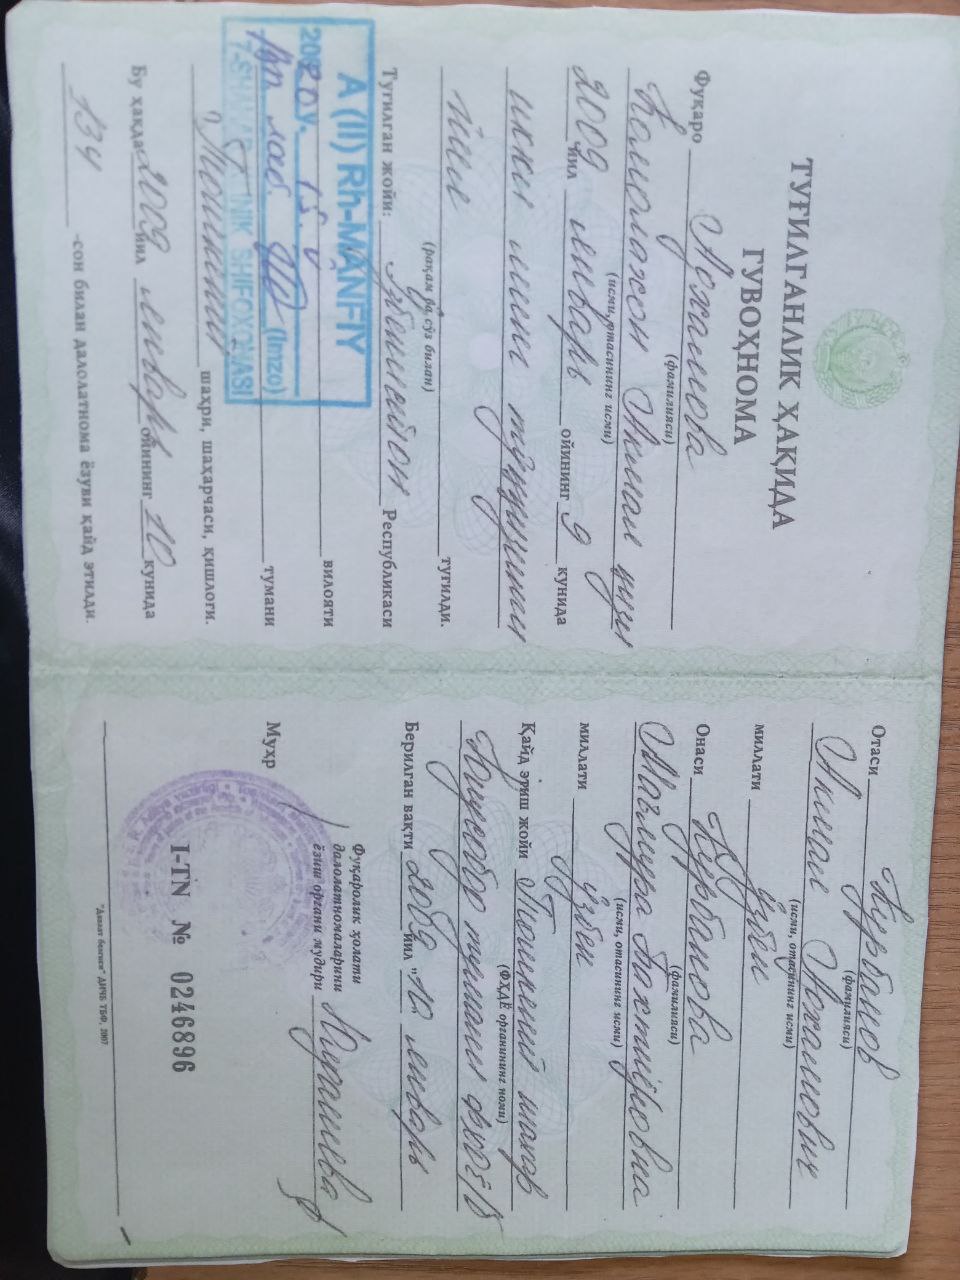 ТУҒИЛГАНЛИК ҲАҚИДА
ГУВОҲНОМА
Фуқаро
(фамилияси)
Акмал қизи
(исми, отасининг исми)
2009 йил январь ойининг 9 кунида
икки минг тўққизинчи
(рақам ва сўз билан)
йил туғилди.
Туғилган жойи: Ўзбекистон Республикаси
вилояти
тумани
Тошкент шаҳри, шаҳарчаси, қишлоғи.
Бу ҳақда 2009 йил январь ойининг 10 кунида
134 -сон билан далолатнома ёзуви қайд этилди.
A (II) Rh-MANFIY
(Imzo)
SHIFOXONASI
Отаси Курбанов
(фамилияси)
Акмал
(исми, отасининг исми)
миллати ўзбек
Онаси Курбанова
(фамилияси)
Бахтиёровна
(исми, отасининг исми)
миллати ўзбек
Қайд этиш жойи Тошкент шаҳар
(ФҲДЁ органининг номи)
Юнусобод тумани ФҲДЁ б
Берилган вақти 2009 йил "10" январь
Муҳр
Фуқаролик ҳолати
далолатномаларини
ёзиш органи мудири
I-TN № 0246896
"Давлат белгиси" ДИЧБ ТБФ, 2007